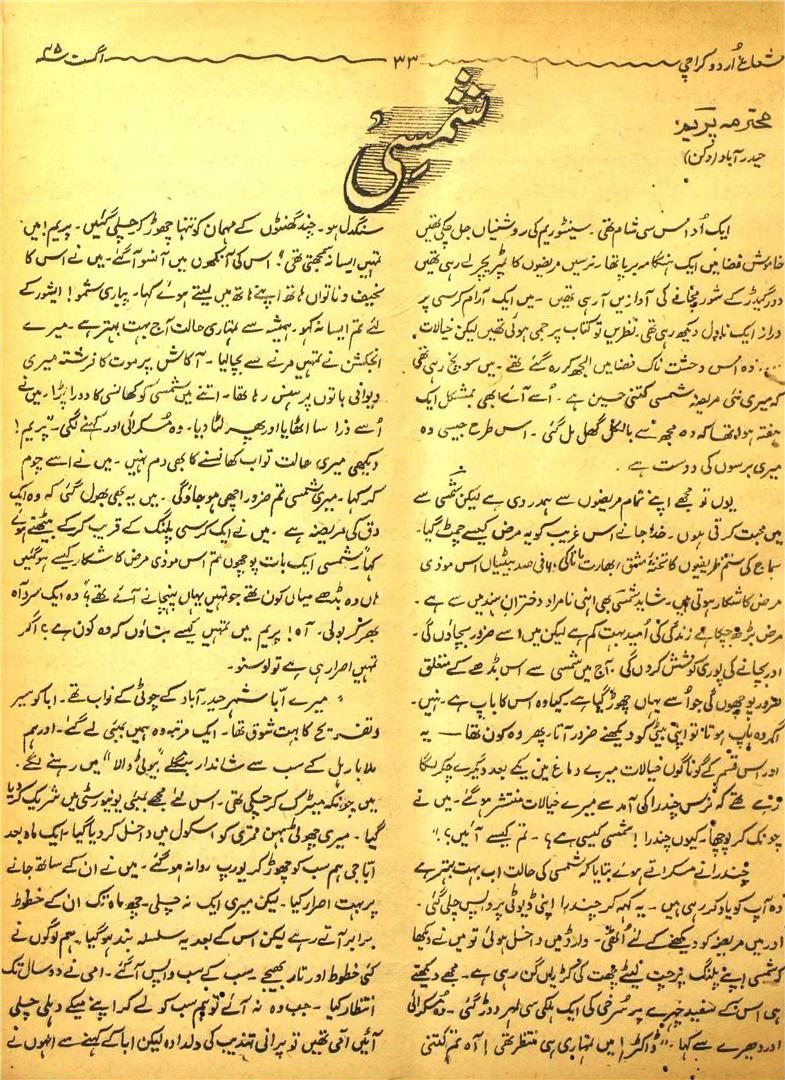 شعاع اُردو کراچی
۳۳
اگست ۴۵ء
شمسی
محترمہ پریم
حیدرآباد (دکن)
ایک اُداس سی شام تھی ۔ سینٹوریم کی روشنیاں جل چکی تھیں
خاموش فضا میں ایک ہنگامہ برپا تھا، نرسیں مریضوں کا ٹمپریچر لے رہی تھیں
دور گیدڑ کے شور مچانے کی آوازیں آ رہی تھیں ۔ میں ایک آرام کرسی پر
دراز ایک ناول دیکھ رہی تھی۔ نظریں تو کتاب پر جمی ہوئی تھیں لیکن خیالات
.... وہ اس دحشت ناک فضا میں الجھ کر رہ گئے تھے ۔ میں سوچ رہی تھی
کہ میری نئی مریضہ شمسی کتنی حسین ہے ۔ اُسے آئے ابھی بمشکل ایک
ہفتہ ہوا تھا کہ وہ مجھ سے بالکل گھل مل گئی ۔ اس طرح جیسی وہ
میری برسوں کی دوست ہے .
یوں تو مجھے اپنے تمام مریضوں سے ہمدردی ہے لیکن شمسی سے
میں محبت کرتی ہوں ۔ خدا جانے اس غریب کو یہ مرض کیسے چمٹ گیا۔
سماج کی ستم ظریفیوں کا تختۂ مشق بھارت ماتا کی فی صد بیٹیاں اس موذی
مرض کا شکار ہوتی ہیں۔ شاید شمسی بھی اپنی نامراد دخترانِ ہند میں سے ہے ۔
مرض بڑھ چکا ہے زندگی کی اُمید بہت کم ہے لیکن میں اسے ضرور بچاؤں گی ۔
اور بچانے کی پوری کوشش کروں گی ۔ آج میں شمسی سے اس بڈھے کے متعلق
ضرور پوچھوں گی جو اُسے یہاں چھوڑ گیا ہے۔ کیا وہ اس کا باپ ہے ۔ نہیں ۔
اگر وہ باپ ہوتا تو اپنی بیٹی کو دیکھنے ضرور آتا۔ پھر وہ کون تھا — یہ
اور اس قسم کے گوناگوں خیالات میرے دماغ میں یکے بعد دیگرے چکر لگا
رہے تھے کہ نرس چندرا کی آمد سے میرے خیالات منتشر ہو گئے۔ میں نے
چونک کر پوچھا۔ کیوں چندرا! شمسی کیسی ہے؟ ۔ تم کیسے آئیں؟ ،"
چندرا نے مسکراتے ہوئے بتایا کہ شمسی کی حالت اب بہت بہتر ہے
وہ آپ کو یاد کر رہی ہیں ۔ یہ کہہ کر چندرا اپنی ڈیوٹی پر واپس چلی گئی ۔
اور میں مریضہ کو دیکھنے کے لئے اُٹھی ۔ وارڈ میں داخل ہوئی تو میں نے دیکھا
کہ شمسی اپنے پلنگ پر چپت لیٹے چھت کی کڑیاں گن رہی ہے ۔ مجھے دیکھتے
ہی اس کے سفید چہرے پر سُرخی کی ایک ہلکی سی لہر دوڑ گئی ۔ وہ مسکرائی
اور دھیرے سے کہا ۔" ڈاکٹر! میں تمہاری ہی منتظر تھی! آہ تم کتنی
سنگدل ہو ۔ چند گھنٹوں کے مہمان کو تنہا چھوڑ کر چلی گئیں ۔ پریم! میں
تمہیں ایسا نہ سمجھتی تھی! اس کی آنکھوں میں آنسو آ گئے ۔ میں نے اس کا
نحیف و ناتواں ہاتھ اپنے ہاتھ میں لیتے ہوئے کہا۔ پیاری شمو! ایشور کے
لئے تم ایسا نہ کہو۔ ہمیشہ سے تمہاری حالت آج بہت بہتر ہے ۔ میرے
انجکشن نے تمہیں مرنے سے بچا لیا ۔ آکاش پر موت کا فرشتہ میری
دیوانی باتوں پر ہنس رہا تھا۔ اتنے میں شمسی کو کھانسی کا دورا پڑا۔ میں نے
اُسے ذرا سا اٹھایا اور پھر لٹا دیا۔ وہ مُسکرائی اور کہنے لگی۔ "پریم!
دیکھی میری حالت تو اب کھانسنے کا بھی دم نہیں ۔ میں نے اسے چوم
کر کہا ۔ میری شمسی تم ضرور اچھی ہو جاؤ گی ۔ میں یہ بھی بھول گئی کہ وہ ایک
دق کی مریضہ ہے ۔ میں نے ایک کرسی پلنگ کے قریب کر کے بیٹھتے ہوئے
کہا "شمسی ایک بات پوچھوں تم اس موذی مرض کا شکار کیسے ہو گئیں
ہاں وہ بڈھے میاں کون تھے جو تمہیں یہاں پہنچانے آئے تھے؟ وہ ایک سرد آہ
بھر کر بولی ۔ آہ! پریم میں تمہیں کیسے بتاؤں کہ وہ کون ہے؟ اگر
تمہیں اصرار ہی ہے تو لو سنو ۔
" میرے ابّا شہر حیدرآباد کے چوٹی کے نواب تھے ۔ ابا کو سیر
و تفریح کا بہت شوق تھا۔ ایک مرتبہ وہ ہمیں بمبئی لے گئے ۔ اور ہم
ملابار ہل کے سب سے شاندار بنگلے "بیوٹی والا" میں رہنے لگے ۔
میں چونکہ میٹرک کر چکی تھی ۔ اس لئے مجھے بمبئی یونیورسٹی میں شریک کر دیا
گیا ۔ میری چھوٹی بہن قمری کو اسکول میں داخل کر دیا گیا۔ ایک ماہ بعد
ابّا جی ہم سب کو چھوڑ کر یورپ روانہ ہو گئے ۔ میں نے ان کے ساتھ جانے
پر بہت اصرار کیا ۔ لیکن میری ایک نہ چلی ۔ چھ ماہ تک ان کے خطوط
برابر آتے رہے لیکن اس کے بعد یہ سلسلہ بند ہو گیا۔ ہم لوگوں نے
کئی خطوط اور تار بھیجے ۔ سب کے سب واپس آ گئے ۔ امی نے دو سال تک
انتظار کیا ۔ جب وہ نہ آئے تو ہم سب کو لے کر اپنے میکے دہلی چلی
آئیں امی تھیں تو پرانی تہذیب کی دلدادہ لیکن ابا کے کہنے سے انہوں نے